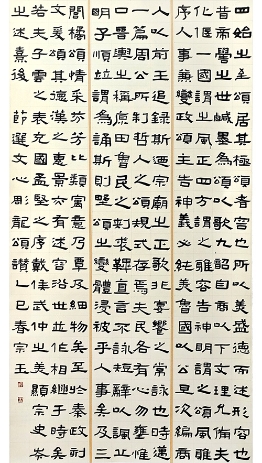 四始之至頌居其極頌者容也所以美盛德而述形容也
昔帝嚳之世咸墨為頌以歌九韶自商以下文理允備夫
化偃一國謂之風風正四方謂之雅容告神明謂之頌風雅
序人事兼變正頌主告神義必純美魯國以公旦次編商
人以前王追錄斯乃宗廟之正歌非宴饗之常詠也時邁
一篇周公所製哲人之頌規式存焉夫民各有心勿壅惟
口晉輿之稱原田魯民之刺裘鞸直言不詠短辭以諷丘
明子順並謂為誦斯則野誦之變體浸被乎人事矣及三
閭橘頌情采芬芳比類寓意乃覃及細物矣至於秦政刻
文爰頌其德漢之惠景亦有述容沿世並作相繼於時矣
若夫子雲之表充國孟堅之序戴侯武仲之美顯宗史岑
之述熹后 節選文心彫龍頌讚一 乙巳春宗玉